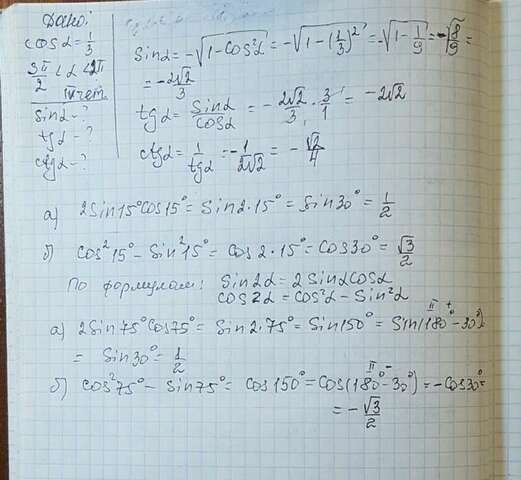 Дано:
cosα = 1/3
3π/2 < α < 2π
IV чет.
sinα - ?
tgα - ?
ctgα - ?
Sinα = -√(1-Cos²α) = -√(1-(1/3)²) = -√(1-1/9) = -√(8/9) =
= -2√2/3
tgα = Sinα/Cosα = -2√2/3 · 3/1 = -2√2
Ctgα = 1/tgα = -1/2√2 = -√2/4
а) 2Sin15°Cos15° = Sin2·15° = Sin30° = 1/2
б) Cos²15° - Sin²15° = Cos2·15° = Cos30° = √3/2
По формулам: Sin2α = 2SinαCosα
Cos2α = Cos²α - Sin²α
а) 2Sin75°Cos75° = Sin2·75° = Sin150° = Sin(180°-30°) II +
= Sin30° = 1/2
б) Cos²75° - Sin75° = Cos150° = Cos(180°-30°) = -Cos30° = II -
= -√3/2